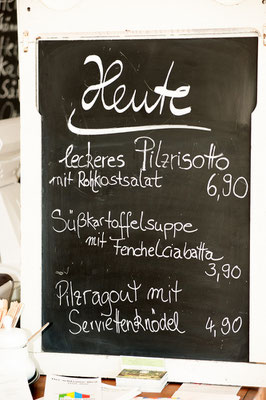 Heute
leckeres Pilzrisotto
mit Rohkostsalat 6,90
Süßkartoffelsuppe
mit Fenchelciabatta
3,90
Pilzragout mit
Serviettenknödel 4,90